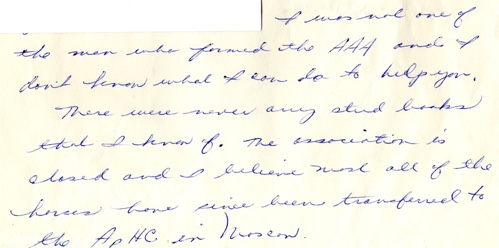 I was not one of
the men who formed the AAA and I
don't know what I can do to help you.
There were never any stud books
that I know of. The association is
closed and I believe most all of the
horses have since been transferred to
the ApHC in Moscow.